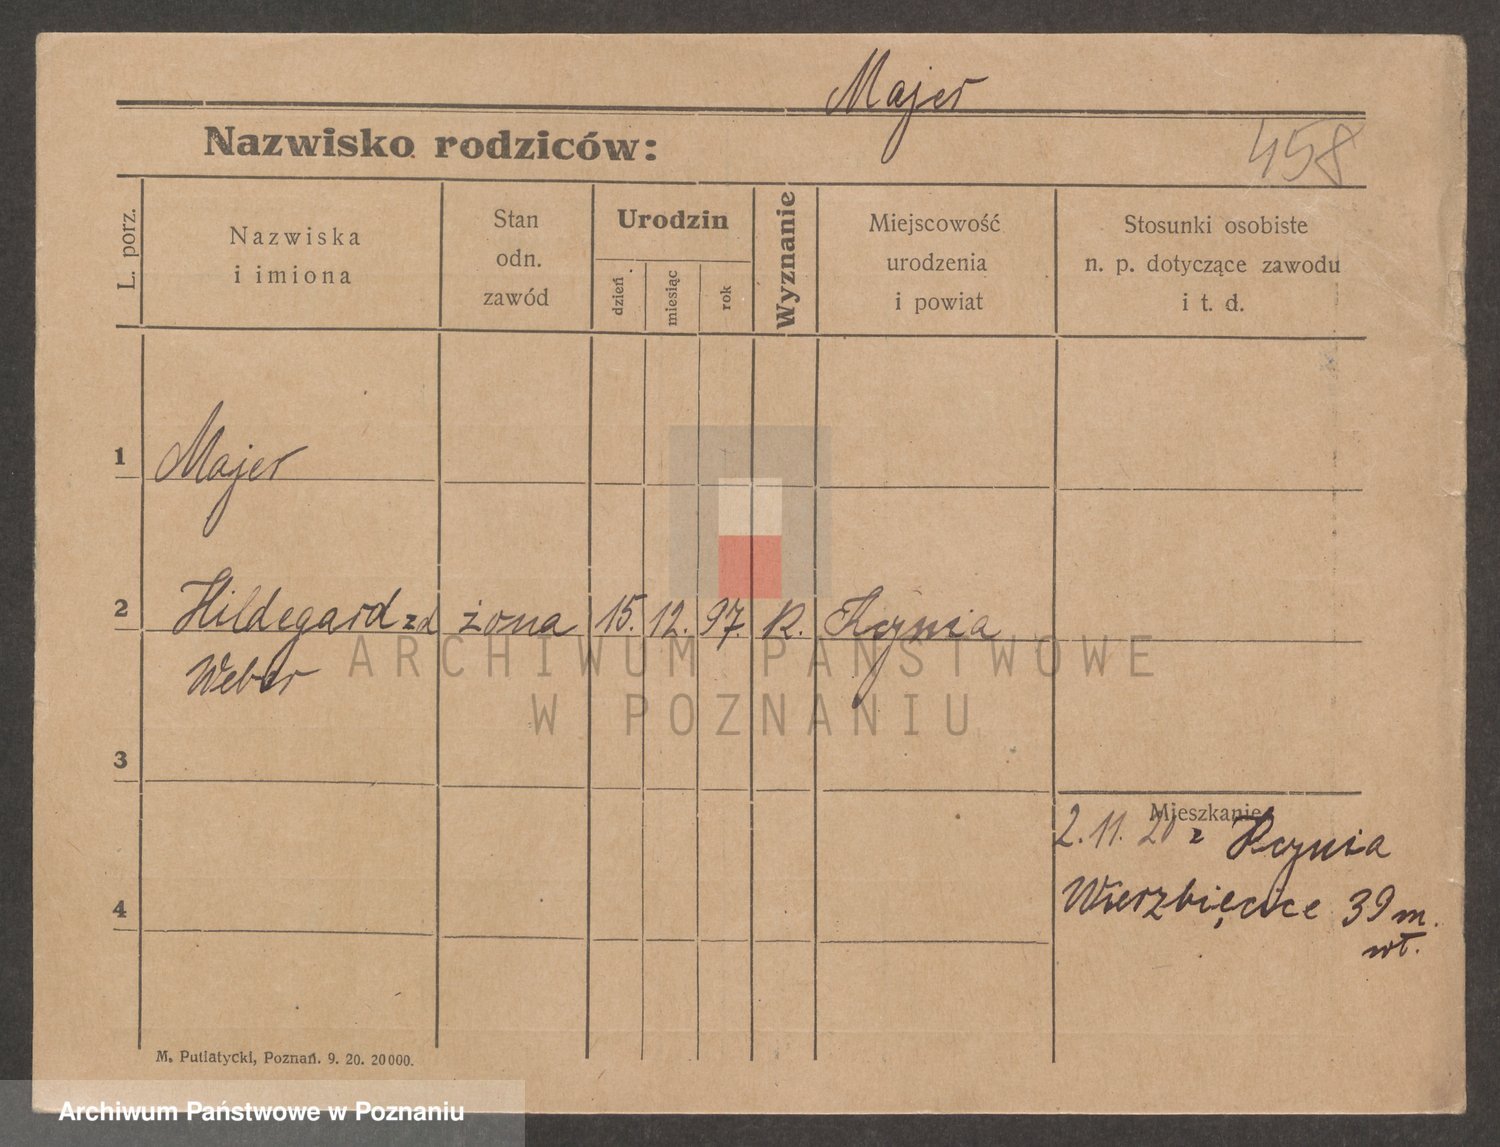 Majer
Nazwisko rodziców:
458
L. porz.
Nazwiska
i imiona
Stan
odn.
zawód
Urodzin
dzień
miesiąc
rok
Wyznanie
Miejscowość
urodzenia
i powiat
Stosunki osobiste
n. p. dotyczące zawodu
i t. d.
1 Majer
2 Hildegard zd żona 15. 12. 97. K. Kcynia
Weber
ARCHIWUM PAŃSTWOWE
W POZNANIU
3
Mieszkanie
2.11. 20 z Kcynia
4 Wierzbięcice 39 m.
wł.
M. Putiatycki, Poznań. 9. 20. 20000.
Archiwum Państwowe w Poznaniu